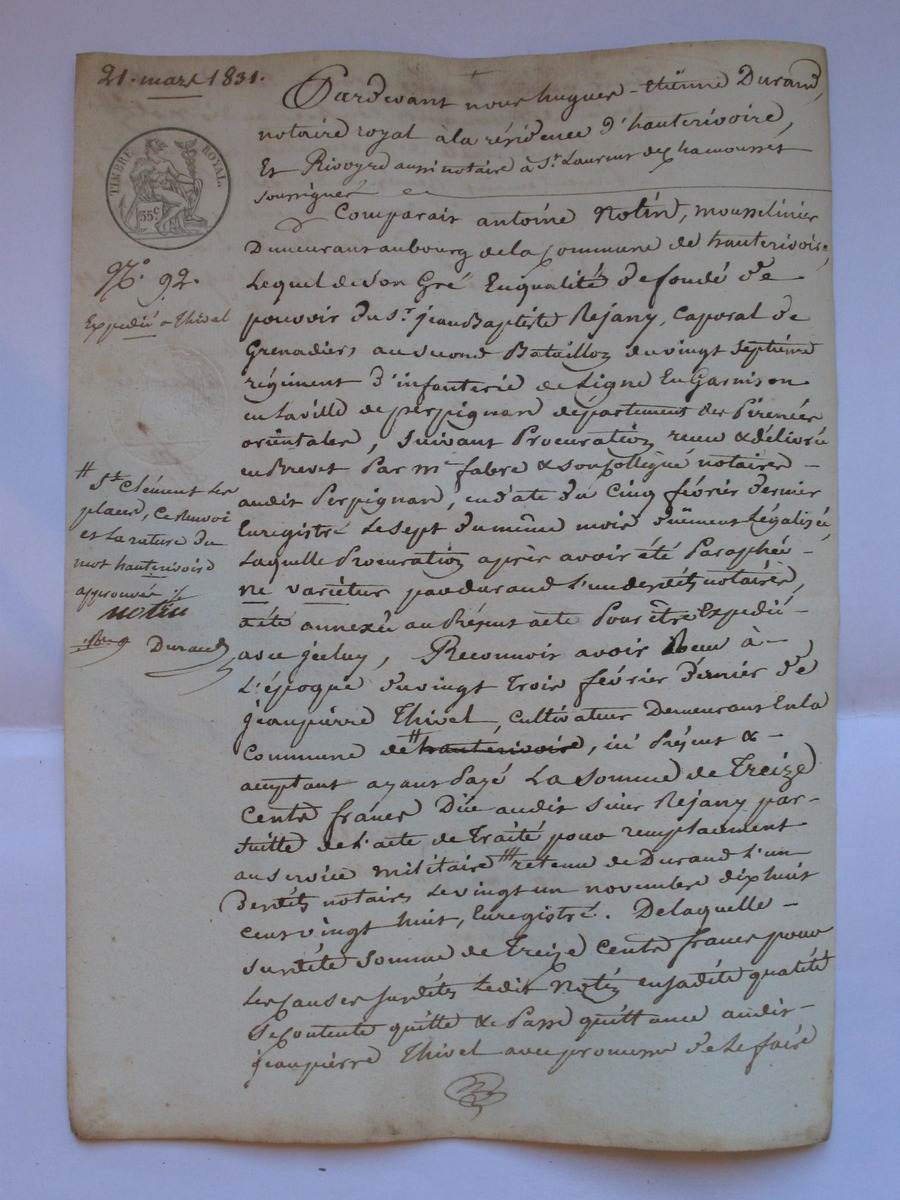 21. mars 1831.
TIMBRE ROYAL.
35c
No. 92.
Expedié a Thivel
Pardevant nous hugues-etienne Durand,
notaire royal à la résidence d'hauterivoire,
Et Rivoyre aussi notaire à St. Laurent de chamousset
soussignés
Comparait antoine Notin, mousselinier
Demeurant au bourg de la Commune de hauterivoire,
Lequel de son Gré En qualité de fondé de
pouvoir du Sr. jean Baptiste Rejany, Caporal de
Grenadiers au second Bataillon du vingt septième
régiment d'infanterie de Ligne En Garnison
en la ville de perpignan département des Pirenées
orientales, suivant Procuration recue & délivrée
en Brevet Par me fabre & son Collègue notaires
audit Perpignan, en date du Cinq février dernier
Enregistré Le sept du même mois, duement Légalisée
Laquelle Procuration après avoir été Paraphée
ne varietur par durand L'un desdits notaires,
a été annexée au Présent acte Pour être Expedié
avec jceluy, Reconnoit avoir Reçu à
L'époque du vingt Trois février dernier de
jean pierre Thivel, cultivateur Demeurant En la
Commune de # hauterivoire, ici Présent &
acceptant ayant Payé La somme de Treize
Cents francs Düe audit sieur Rejany par
suitte de l'acte de Traité pour remplacement
au service militaire # retenu de Durand L'un
desdits notaires Le vingt un novembre dix huit
cent vingt huit, Enregistré. De laquelle
susdite somme de Treize Cents francs pour
Les Causes susdites Ledit Notin en sadite qualité
se Contente quitte & Passe quittance audit
jean pierre Thivel avec promesse de Le faire
# St. Clément les
places, Ce Renvoi
et La rature du
mot hauterivoire
approuvée
notin
Durand